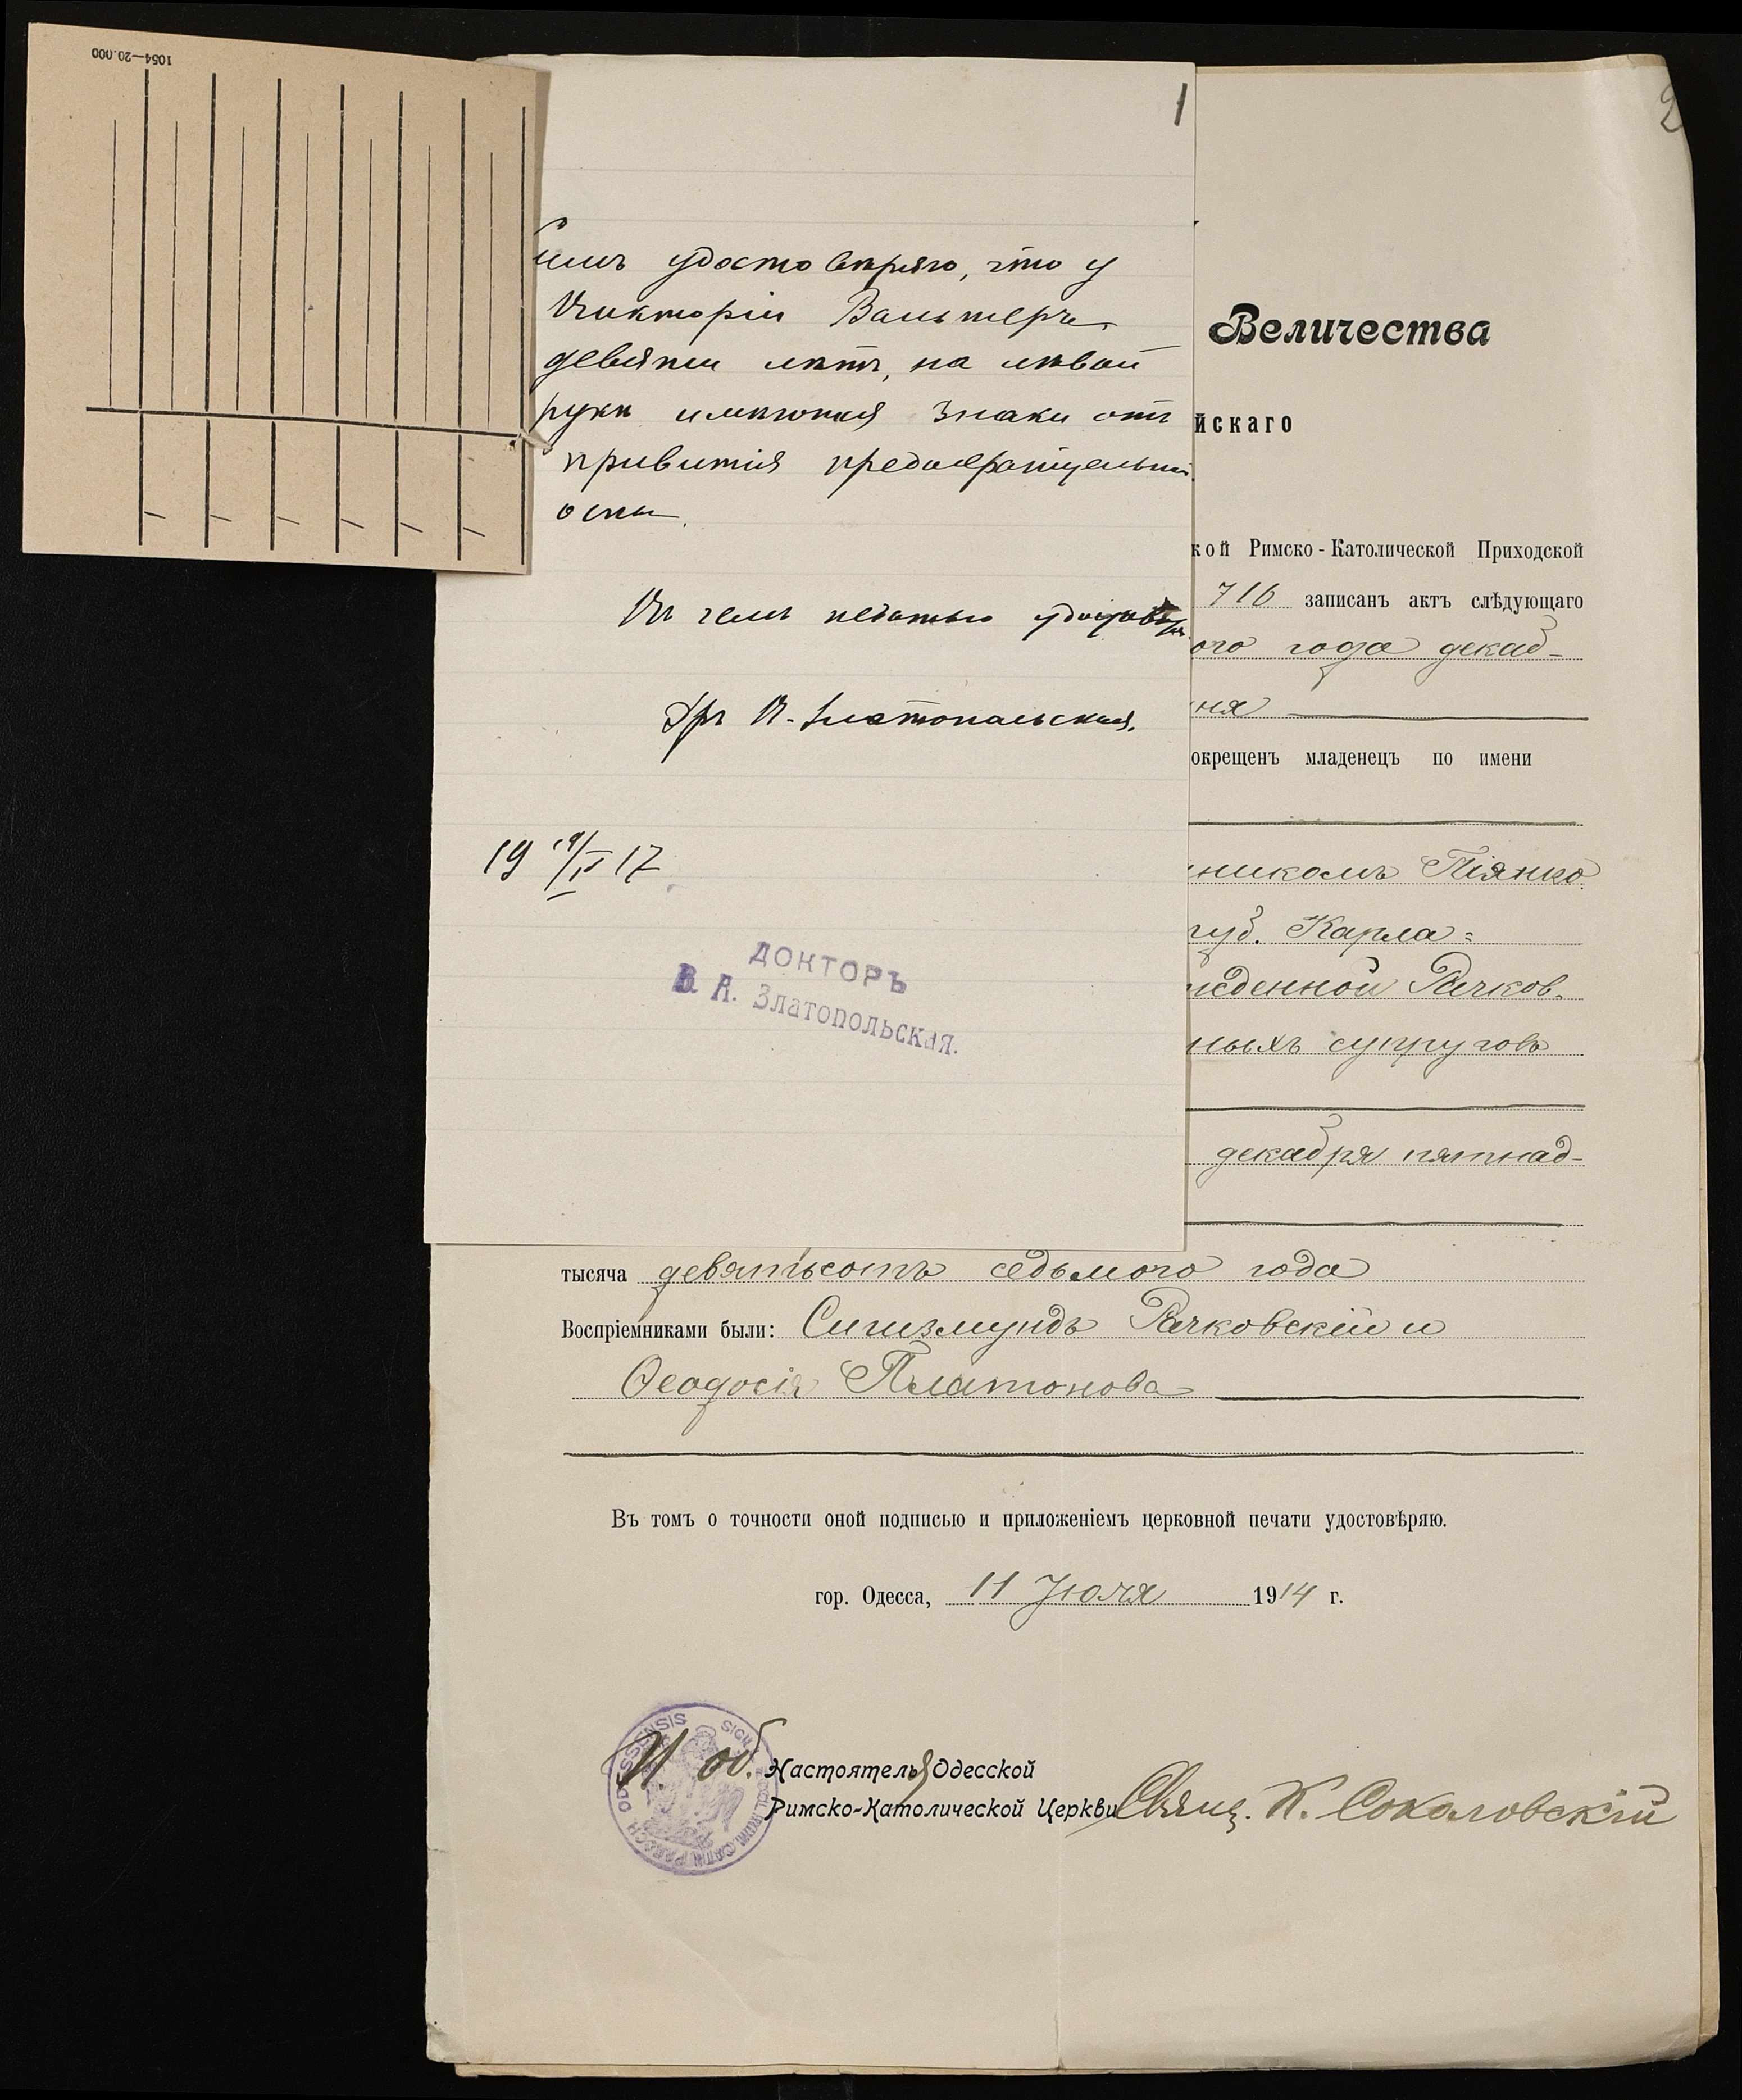 1054—20.000
1
Симъ удостовѣряю, что у
Викторіи Вальтеръ
девяти лѣтъ, на лѣвой
рукѣ имѣются знаки отъ
привитія предохранительной
оспы.
Въ чемъ печатью удостовѣряю
Др. В. Златопольская.
19 19/V 17
ДОКТОРЪ
В. А. Златопольская.
2
Величества
йскаго
кой Римско-Католической Приходской
716 записанъ актъ слѣдующаго
ого года декаб-
ня
окрещенъ младенецъ по имени
никомъ Піянко
губ. Карла
жденной Рачков-
ныхъ супруговъ
декабря пятнад-
тысяча девятьсотъ седьмого года
Воспріемниками были: Сигизмундъ Рачковскій и
Ѳеодосія Платонова
Въ томъ о точности оной подписью и приложеніемъ церковной печати удостовѣряю.
гор. Одесса, 11 Іюля 1914 г.
И. об. Настоятеля Одесской
Римско-Католической Церкви Свящ. К. Соколовскій